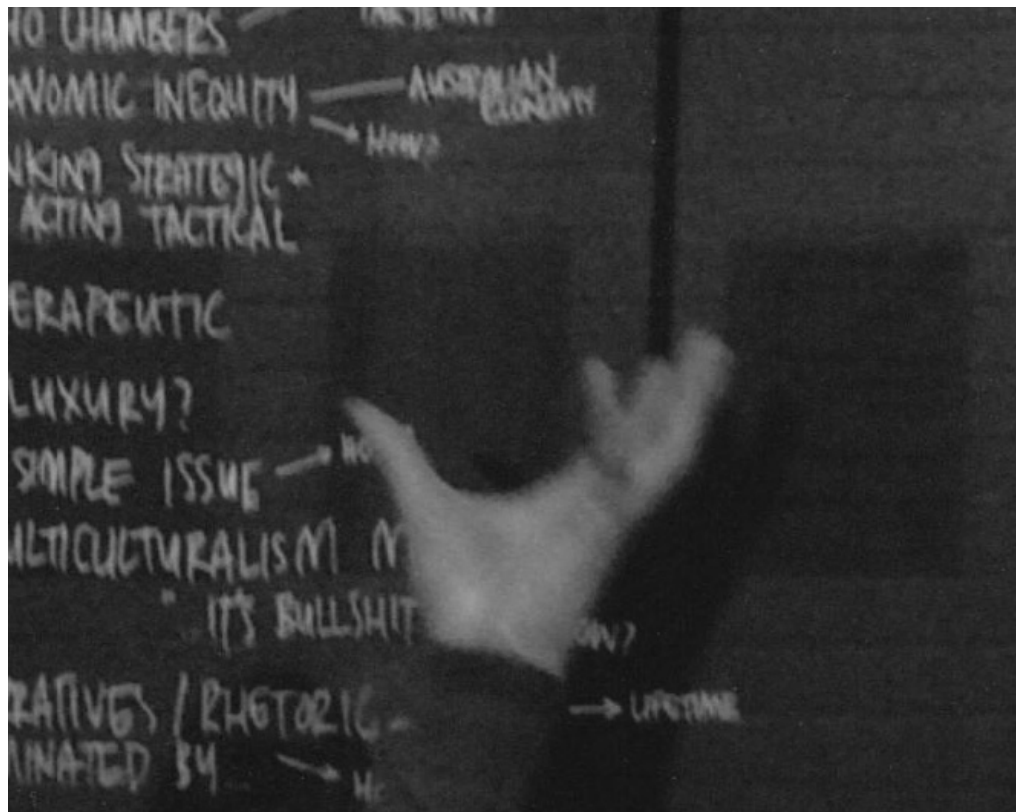 HO CHAMBERS — TARGETING
NOMIC INEQUITY — AUSTRALIAN ECONOMY
→ HOW?
NKING STRATEGIC +
ACTING TACTICAL
ERAPEUTIC
LUXURY?
SIMPLE ISSUE → HO
ULTICULTURALISM M
" IT'S BULLSHIT OW?
RATIVES / RHETORIC - → LIFETIME
MINATED BY → H